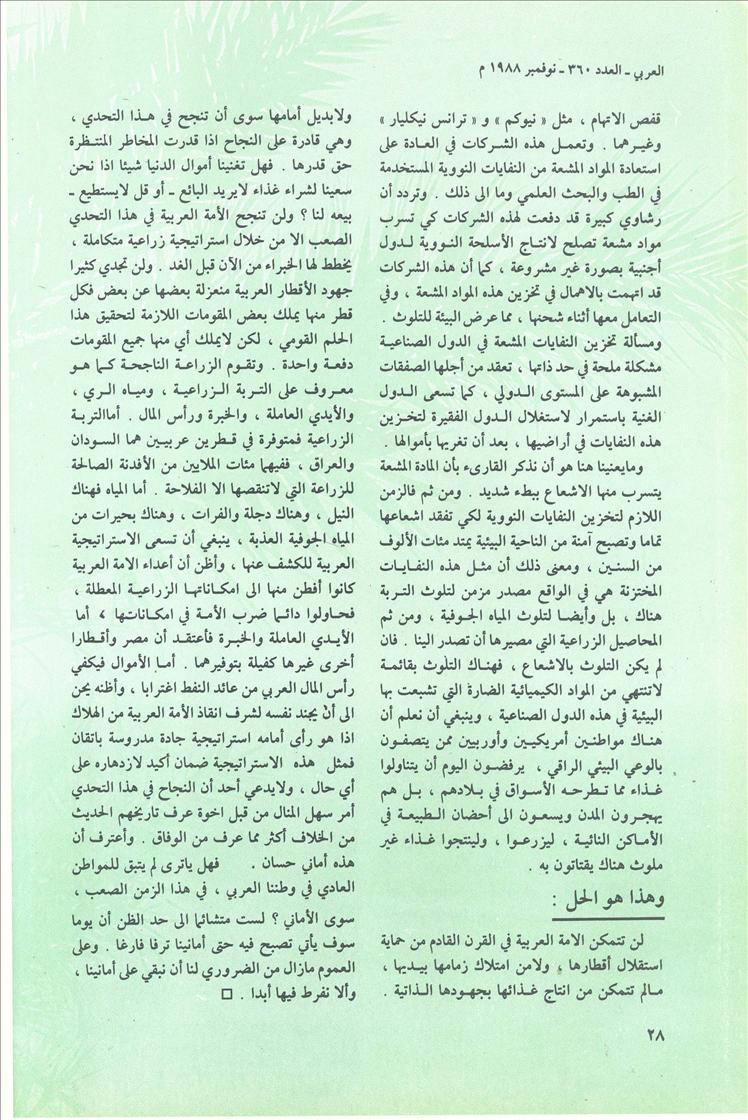 العربي ـ العدد ٣٦٠ ـ نوفمبر ١٩٨٨ م
قفص الاتهام ، مثل « نيوكم » و « ترانس نيكليار »
وغيرهما . وتعمل هذه الشركات في العادة على
استعادة المواد المشعة من النفايات النووية المستخدمة
في الطب والبحث العلمي وما الى ذلك . وتردد أن
رشاوي كبيرة قد دفعت لهذه الشركات كي تسرب
مواد مشعة تصلح لانتاج الأسلحة النووية لدول
أجنبية بصورة غير مشروعة ، كما أن هذه الشركات
قد اتهمت بالاهمال في تخزين هذه المواد المشعة ، وفي
التعامل معها أثناء شحنها ، مما عرض البيئة للتلوث .
ومسألة تخزين النفايات المشعة في الدول الصناعية
مشكلة ملحة في حد ذاتها ، تعقد من أجلها الصفقات
المشبوهة على المستوى الدولي ، كما تسعى الدول
الغنية باستمرار لاستغلال الدول الفقيرة لتخزين
هذه النفايات في أراضيها ، بعد أن تغريها بأموالها .
ومايعنينا هنا هو أن نذكر القارىء بأن المادة المشعة
يتسرب منها الاشعاع ببطء شديد . ومن ثم فالزمن
اللازم لتخزين النفايات النووية لكي تفقد اشعاعها
تماما وتصبح آمنة من الناحية البيئية يمتد مئات الألوف
من السنين ، ومعنى ذلك أن مثل هذه النفايات
المختزنة هي في الواقع مصدر مزمن لتلوث التربة
هناك ، بل وأيضا لتلوث المياه الجوفية ، ومن ثم
المحاصيل الزراعية التي مصيرها أن تصدر الينا . فان
لم يكن التلوث بالاشعاع ، فهناك التلوث بقائمة
لاتنتهي من المواد الكيميائية الضارة التي تشبعت بها
البيئية في هذه الدول الصناعية ، وينبغي أن نعلم أن
هناك مواطنين أمريكيين وأوربيين ممن يتصفون
بالوعي البيئي الراقي ، يرفضون اليوم أن يتناولوا
غذاء مما تطرحه الأسواق في بلادهم ، بل هم
يهجرون المدن ويسعون الى أحضان الطبيعة في
الأماكن النائية ، ليزرعوا ، ولينتجوا غذاء غير
ملوث هناك يقتاتون به .
وهذا هو الحل :
لن تتمكن الامة العربية في القرن القادم من حماية
استقلال أقطارها ، ولامن امتلاك زمامها بيديها ،
مالم تتمكن من انتاج غذائها بجهودها الذاتية .
ولابديل أمامها سوى أن تنجح في هذا التحدي ،
وهي قادرة على النجاح اذا قدرت المخاطر المنتظرة
حق قدرها . فهل تغنينا أموال الدنيا شيئا اذا نحن
سعينا لشراء غذاء لايريد البائع ـ أو قل لايستطيع ـ
بيعه لنا ؟ ولن تنجح الأمة العربية في هذا التحدي
الصعب الا من خلال استراتيجية زراعية متكاملة ،
يخطط لها الخبراء من الآن قبل الغد . ولن تجدي كثيرا
جهود الأقطار العربية منعزلة بعضها عن بعض فكل
قطر منها يملك بعض المقومات اللازمة لتحقيق هذا
الحلم القومي ، لكن لايملك أي منها جميع المقومات
دفعة واحدة . وتقوم الزراعة الناجحة كما هو
معروف على التربة الزراعية ، ومياه الري ،
والأيدي العاملة ، والخبرة ورأس المال . أماالتربة
الزراعية فمتوفرة في قطرين عربيين هما السودان
والعراق ، ففيهما مئات الملايين من الأفدنة الصالحة
للزراعة التي لاتنقصها الا الفلاحة . أما المياه فهناك
النيل ، وهناك دجلة والفرات ، وهناك بحيرات من
المياه الجوفية العذبة ، ينبغي أن تسعى الاستراتيجية
العربية للكشف عنها ، وأظن أن أعداء الامة العربية
كانوا أفطن منها الى امكاناتها الزراعية المعطلة ،
فحاولوا دائما ضرب الأمة في امكاناتها ٧ أما
الأيدي العاملة والخبرة فأعتقد أن مصر وأقطارا
أخرى غيرها كفيلة بتوفيرهما . أما الأموال فيكفي
رأس المال العربي من عائد النفط اغترابا ، وأظنه يحن
الى أن يجند نفسه لشرف انقاذ الأمة العربية من الهلاك
اذا هو رأى أمامه استراتيجية جادة مدروسة باتقان
فمثل هذه الاستراتيجية ضمان أكيد لازدهاره على
أي حال ، ولايدعي أحد أن النجاح في هذا التحدي
أمر سهل المنال من قبل اخوة عرف تاريخهم الحديث
من الخلاف أكثر مما عرف من الوفاق . وأعترف أن
هذه أماني حسان . فهل ياترى لم يتبق للمواطن
العادي في وطننا العربي ، في هذا الزمن الصعب ،
سوى الأماني ؟ لست متشائما الى حد الظن أن يوما
سوف يأتي تصبح فيه حتى أمانينا ترفا فارغا . وعلى
العموم مازال من الضروري لنا أن نبقي على أمانينا ،
وألا نفرط فيها أبدا . □
٢٨